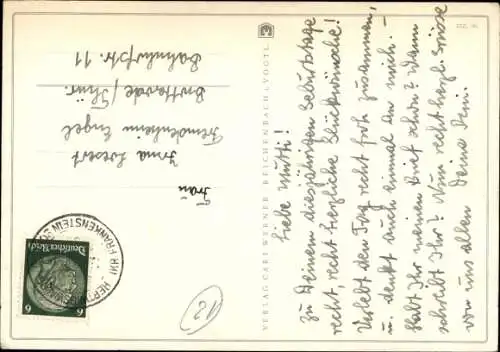 Liebe Mutti!
Zu Deinem diesjährigen Geburtstage
recht, recht herzliche Glückwünsche!
Verlebt den Tag recht froh zusammen,
u. denkt auch einmal an mich. –
Habt Ihr meinen Brief schon? Wann
schreibt Ihr? Nun recht herzl. Grüsse
von uns allen Deine
Frau
Irma
Fremdenheim Engel
Brotterode/Thür.
Bahnhofstr. 11
VERLAG CARL WERNER, REICHENBACH i. VOGTL.
Deutsches Reich
6 6
FRANKENSTEIN
12